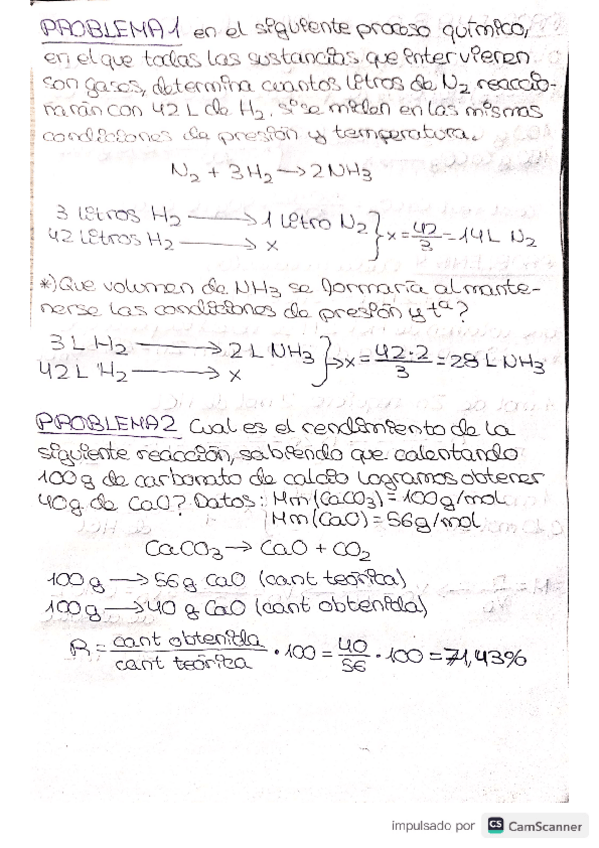 PROBLEMA 1 en el siguiente proceso químico,
en el que todas las sustancias que intervienen
son gases, determina cuantos litros de N2 reaccio-
narán con 42 L de H2. si se miden en las mismas
condiciones de presión y temperatura.
N2 + 3H2 → 2NH3
3 litros H2 → 1 litro N2 } x = 42/3 = 14L N2
42 litros H2 → x
*) Que volumen de NH3 se formaría al mante-
nerse las condiciones de presión y tª?
3 L H2 → 2 L NH3 } → x = 42·2/3 = 28 L NH3
42 L H2 → x
PROBLEMA 2 Cual es el rendimiento de la
siguiente reacción, sabiendo que calentando
100 g de carbonato de calcio logramos obtener
40g de CaO? Datos: Mm (CaCO3) = 100g/mol
Mm (CaO) = 56g/mol
CaCO3 → CaO + CO2
100 g → 56 g CaO (cant teórica)
100g → 40 g CaO (cant obtenida)
R = cant obtenida/cant teórica · 100 = 40/56 · 100 = 71,43%
impulsado por CS CamScanner